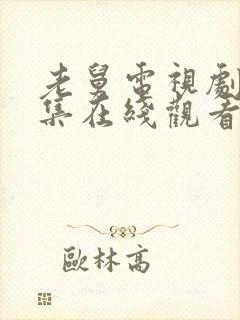 老舅電視劇
集在綫觀看
歐林高